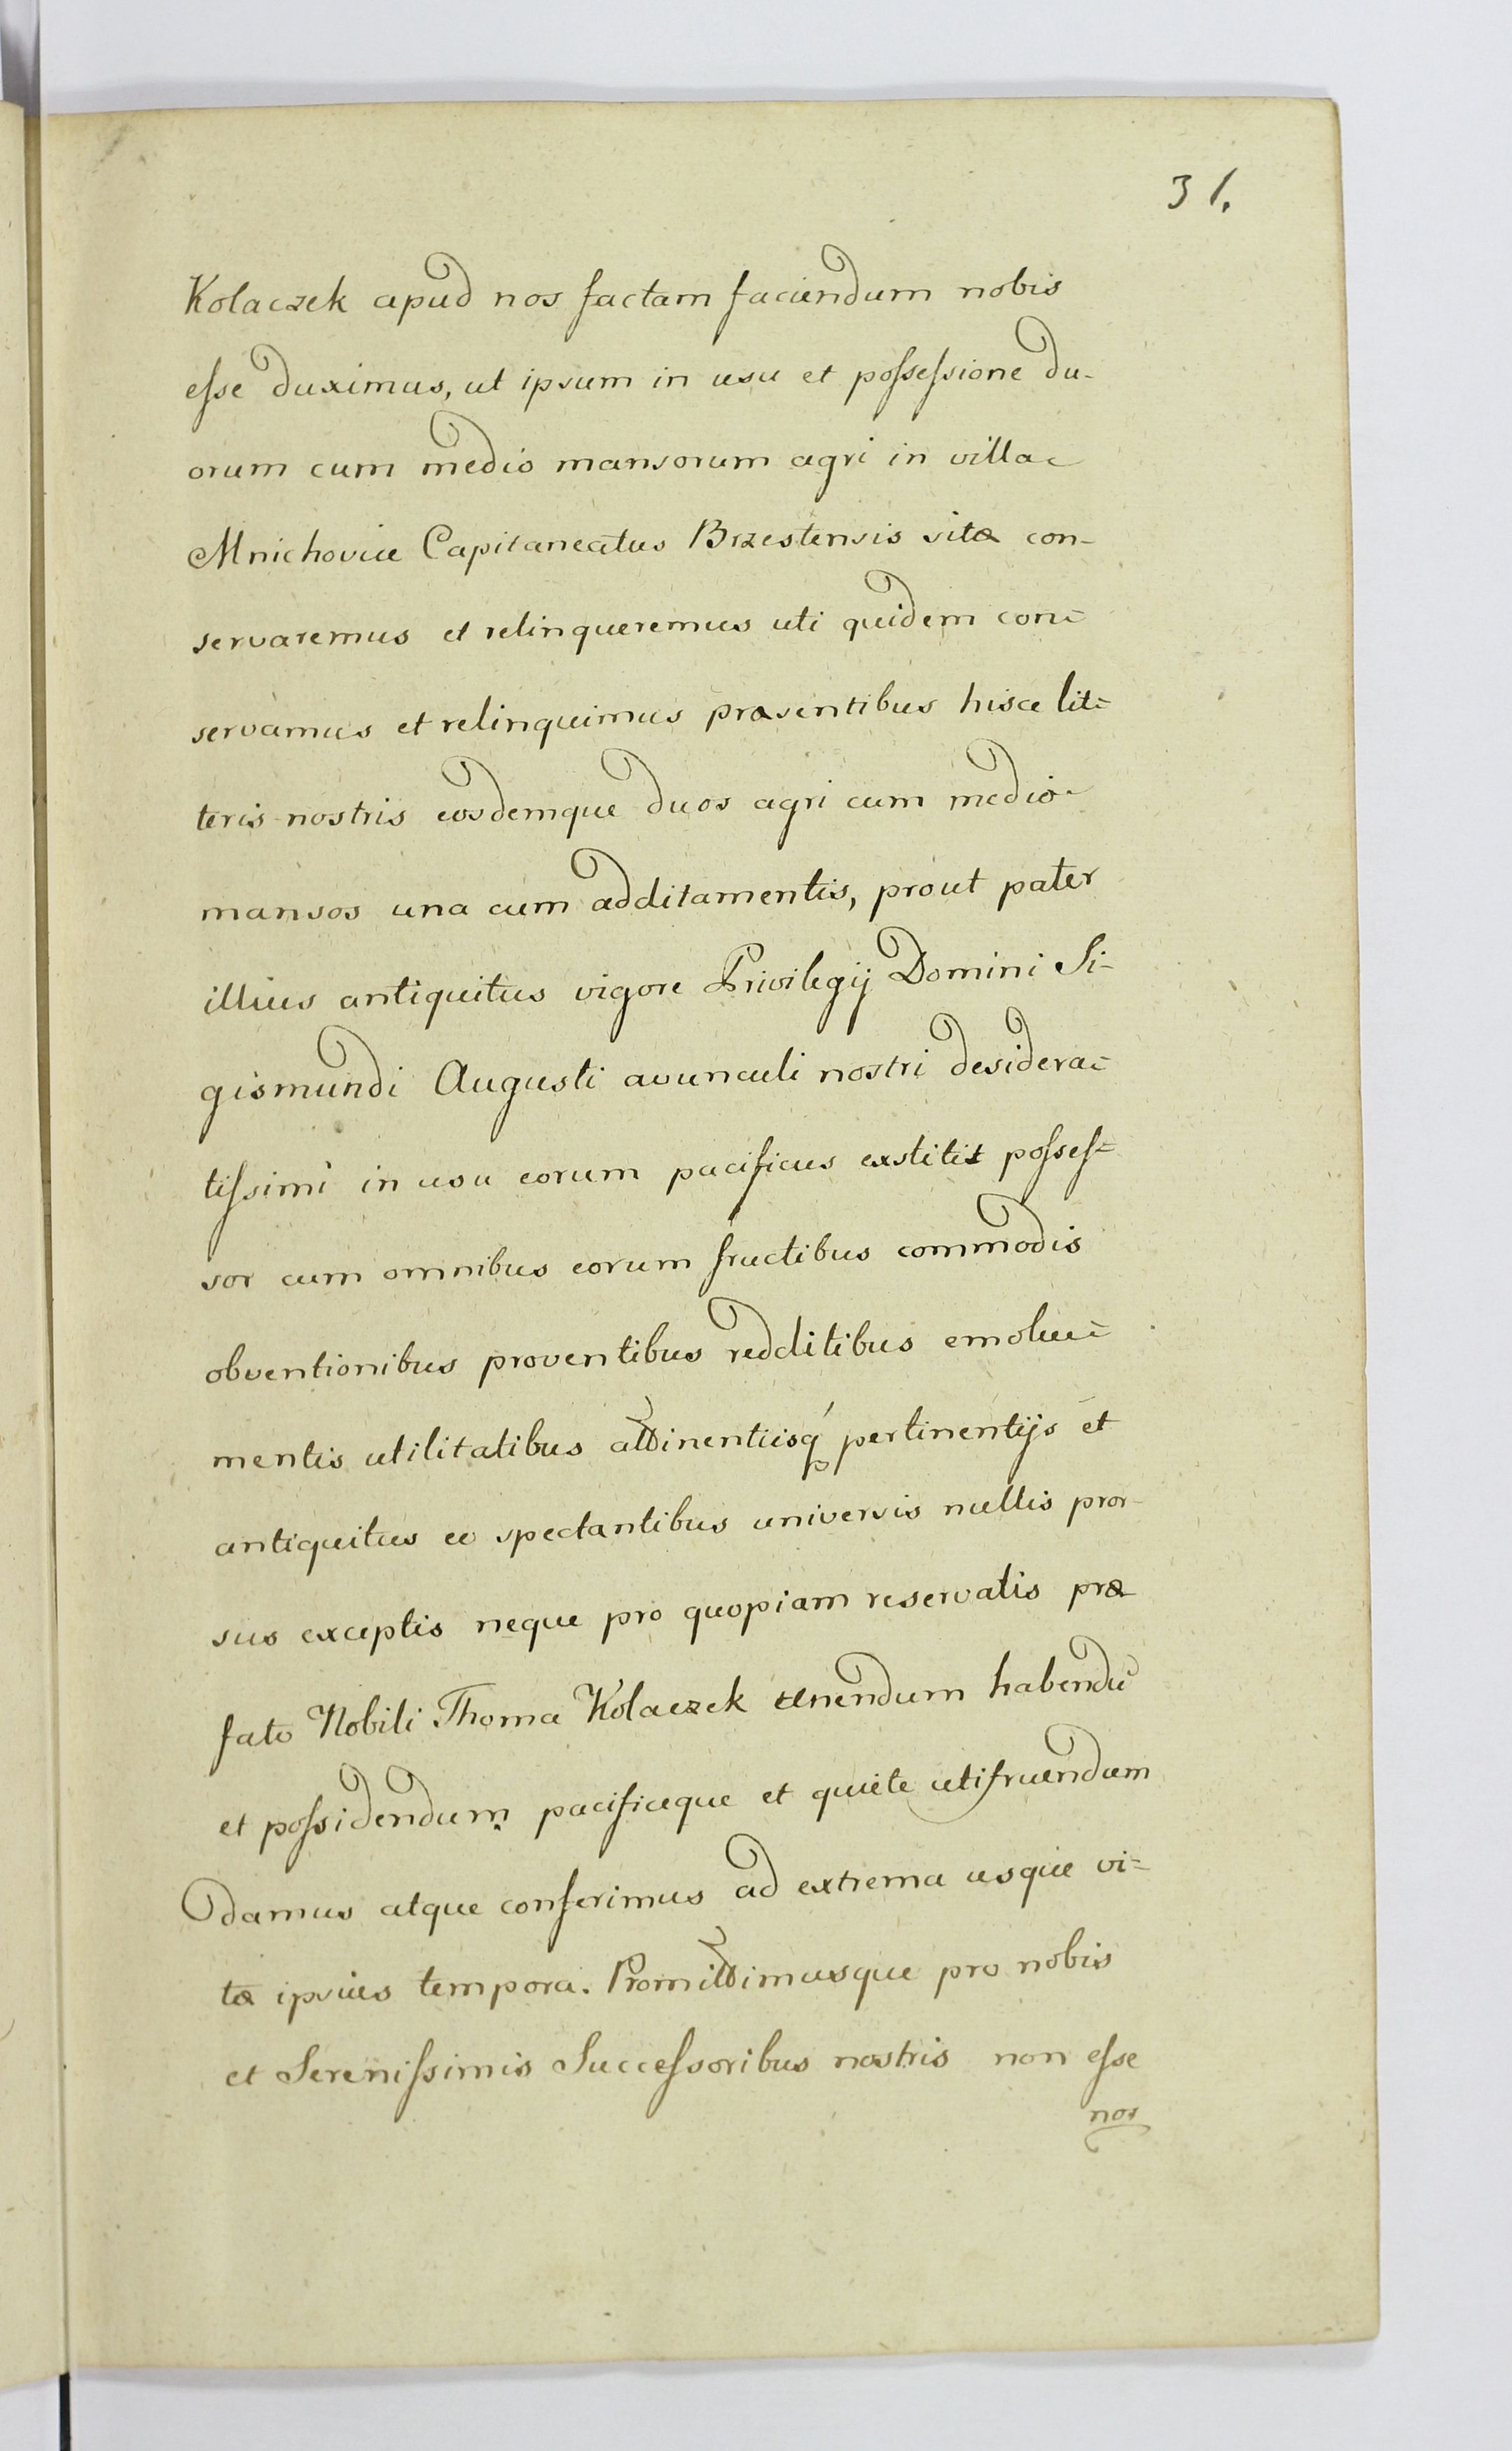 31.
Kolaczek apud nos factam faciendum nobis
eſse duximus, ut ipsum in usu et poſseſsione du-
orum cum medio mansorum agri in villa
Mnichovice Capitaneatus Brzestensis sitæ con-
servaremus et relinqueremus uti quidem con=
servamus et relinquimus præsentibus hisce lit=
teris nostris eosdemque duos agri cum medio
mansos una cum additamentis, prout pater
illius antiquitus vigore Privilegij Domini Si-
gismundi Augusti avunculi nostri desidera=
tiſsimi in usu eorum pacificus exstitit poſseſ=
sor cum omnibus eorum fructibus commodis
obventionibus proventibus redditibus emolu=
mentis utilitatibus attinentiisq́ pertinentijs et
antiquitus eo spectantibus universis nullis pror-
sus exceptis neque pro quopiam reservatis præ
fato Nobili Thoma Kolaczek tenendum habendũ
et poſsidendum pacificeque et quiete utifruendum
damus atque conferimus ad extrema usque vi=
tæ ipsius tempora. Promittimusque pro nobis
et Sereniſsimis Succeſsoribus nostris non eſse
nos